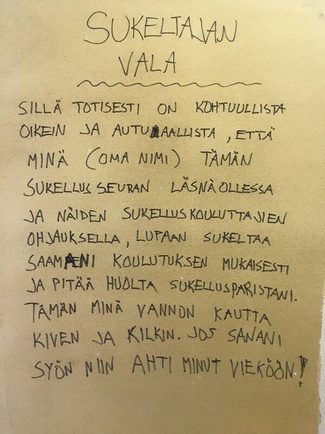 SUKELTAJAN
VALA
SILLÄ TOTISESTI ON KOHTUULLISTA
OIKEIN JA AUTUAALLISTA, ETTÄ
MINÄ (OMA NIMI) TÄMÄN
SUKELLUSSEURAN LÄSNÄOLLESSA
JA NÄIDEN SUKELLUSKOULUTTAJIEN
OHJAUKSELLA, LUPAAN SUKELTAA
SAAMANI KOULUTUKSEN MUKAISESTI
JA PITÄÄ HUOLTA SUKELLUSPARISTANI.
TÄMÄN MINÄ VANNON KAUTTA
KIVEN JA KILKIN. JOS SANANI
SYÖN NIIN AHTI MINUT VIEKÖÖN!